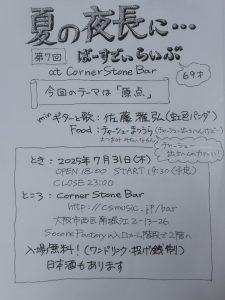 夏の夜長に…
第7回 ばーすでぃらいぶ
69才
at Corner Stone Bar
今回のテーマは「原点」
ギターと歌：佐藤雅弘(虹色パンダ)
Food：チャーシューまつうら
(チャーシュー
チャーシュー
とき：2025年7月31日(木)
OPEN 18:00 START 19:30 (予定)
CLOSE 23:00
ところ：Corner Stone Bar
http://csmusic.jp/bar
大阪市西区南堀江2-13-26
Socore Factoryの入口から階段で2階へ
入場無料！(ワンドリンク・投げ銭制)
日本酒もあります